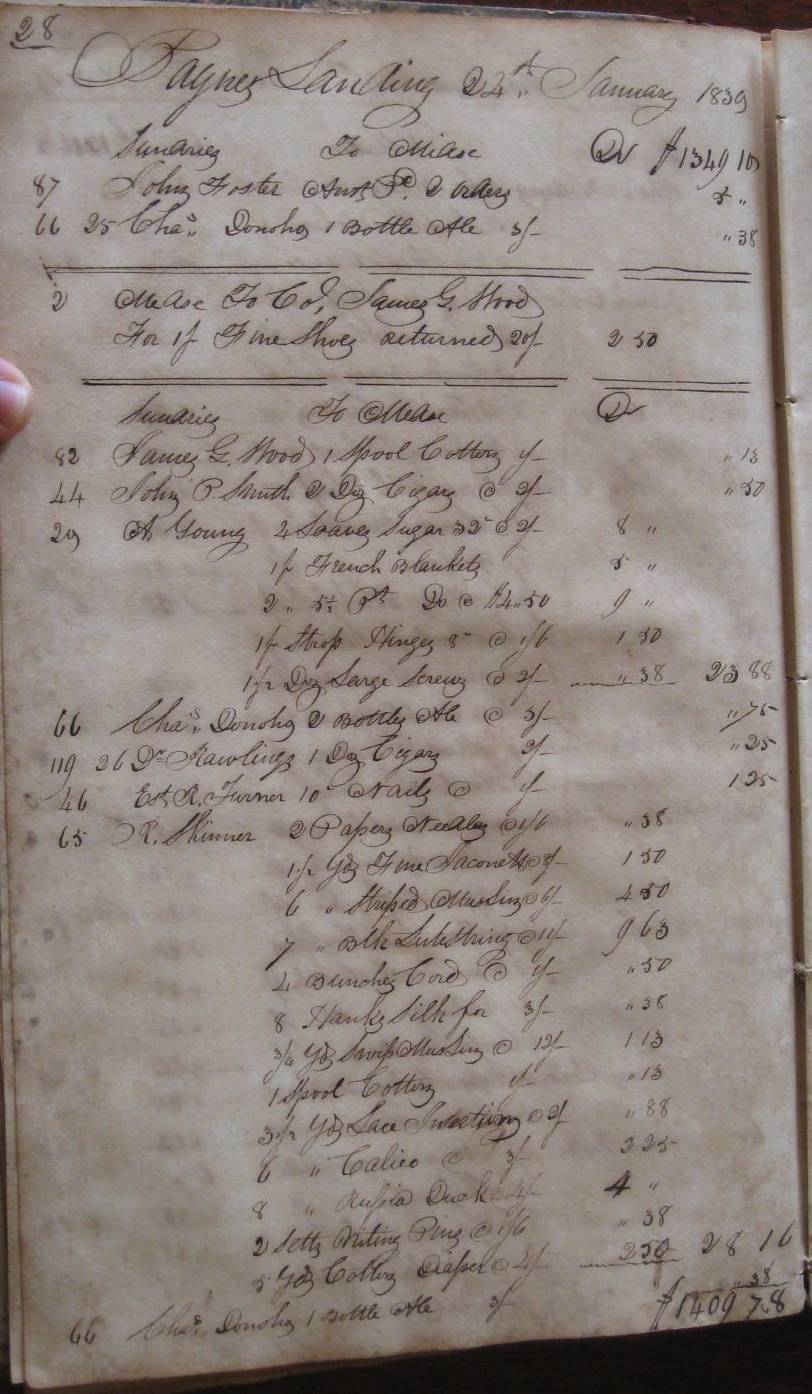 28
Paynes Landing 24th. January 1839
Sundries To Mdse Dr $1349 10
87 John Foster Amt Pd. 2 orders 5 "
66 25 Chas. Donoho 1 Bottle Ale 3/- " 38
2 Mdse To Co, James G. Wood
For 1 p Fine Shoes returned 20/- 2 50
Sundries To Mdse Dr
82 James G. Wood 1 Spool Cotton 1/- " 13
44 John P. Smith 2 Doz Cigars @ 2/- " 50
29 A. Young 4 Loaves Sugar 32 @ 2/- 8 "
1 p French Blankets 5 "
2 " 5½ Pt Do @ $4.50 9 "
1 p Strap Hinges 8 @ 1/6 1 50
1½ Doz Large Screws @ 2/- " 38 23 88
66 Chas. Donoho 2 Bottles Ale @ 3/- " 75
119 26 Dr Rawlings 1 Doz Cigars 2/- " 25
46 Est R. Turner 10 Nails @ 1/- 1 25
65 R. Skinner 2 Papers Needles @ 1/6 " 38
1½ Yds Fine Jaconett @ 8/- 1 50
6 " Striped Muslin @ 6/- 4 50
7 " Blk Lutestring @ 11/- 9 63
4 Bunches Cord @ 1/- " 50
8 Hanks Silk for 3/- " 38
3/4 Yds Swiss Muslin @ 12/- 1 13
1 Spool Cotton 1/- " 13
3½ Yds Lace Insertion @ 2/- " 88
6 " Calico @ 3/- 2 25
8 " Russia Duck @ 4/- 4 "
2 Setts Kniting Pins @ 1/6 " 38
5 Yds Cotton Diaper @ 4/- 2 50 28 16
66 Chas. Donoho 1 Bottle Ale 3/- " 38
$1409 78